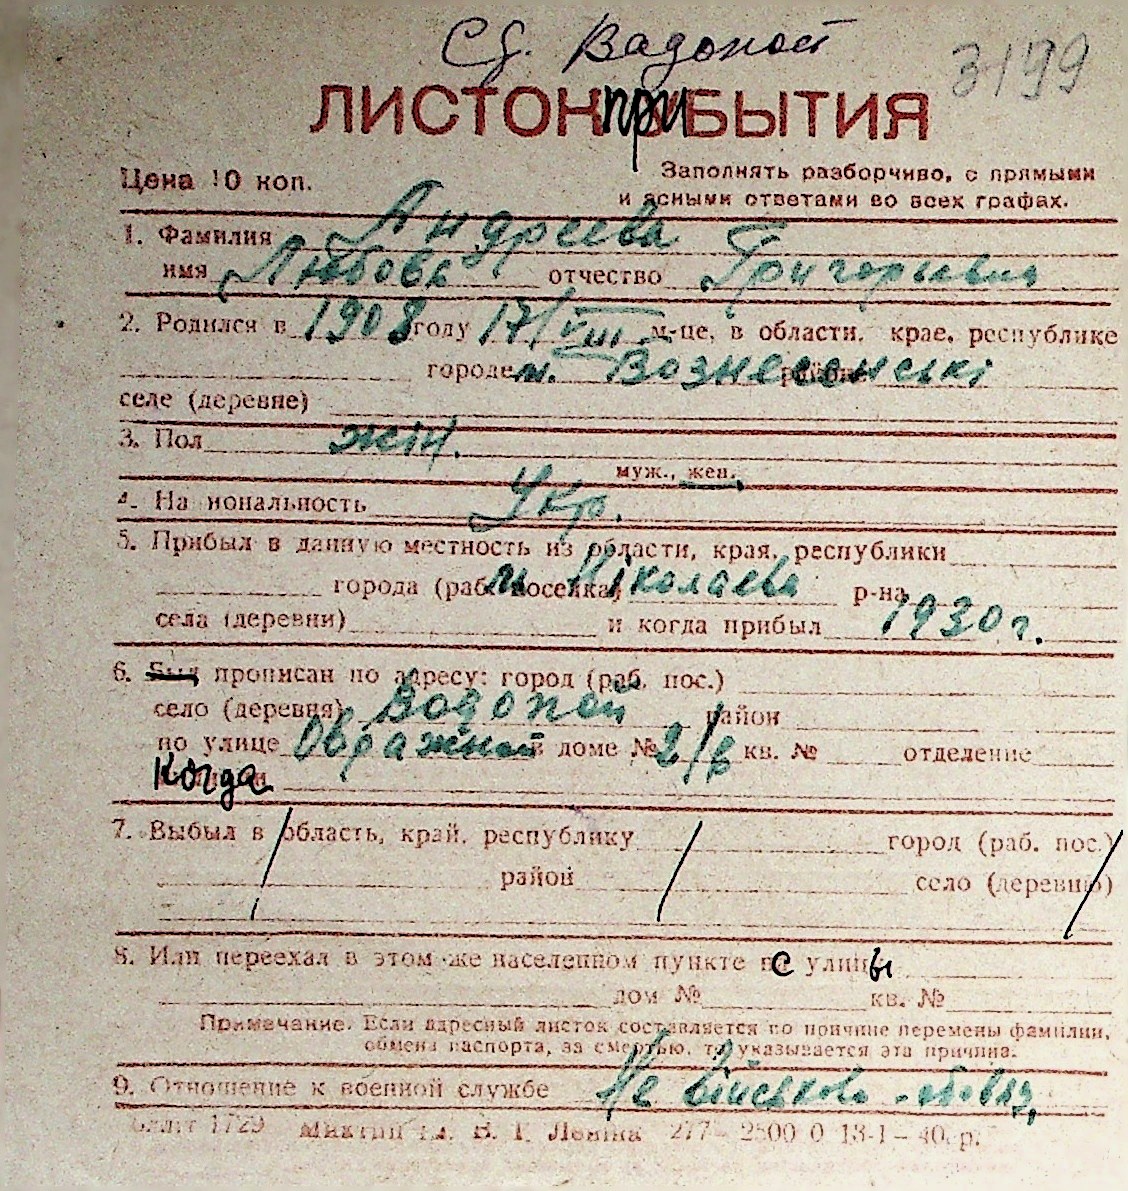 Сд. Вадопой
3199
ЛИСТОК ПРИБЫТИЯ
Цена 10 коп.
Заполнять разборчиво, с прямыми
и ясными ответами во всех графах.
1. Фамилия Андреева
имя Любовь отчество Григорьевна
2. Родился в 1908 году 17/VIII м-це, в области, крае, республике
городе м. Вознесенські
селе (деревне)
3. Пол жін.
муж., жен.
4. Национальность Укр.
5. Прибыл в данную местность из области, края, республики
города (раб. поселка) м. Ніколаева р-на
села (деревни) и когда прибыл 1930 г.
6. Был прописан по адресу: город (раб. пос.)
село (деревня) Водопой район
по улице Овражной в доме № 2/в кв. № отделение
Когда
7. Выбыл в область, край, республику город (раб. пос.)
район село (деревню)
8. Или переехал в этом же населенном пункте с улицы
дом № кв. №
Примечание. Если адресный листок составляется по причине перемены фамилии,
обмена паспорта, за смертью, то указывается эта причина.
9. Отношение к военной службе Не військово-обовяз,
1729 В. І. Леніна 277 – 2500 0 13-І – 40 р.